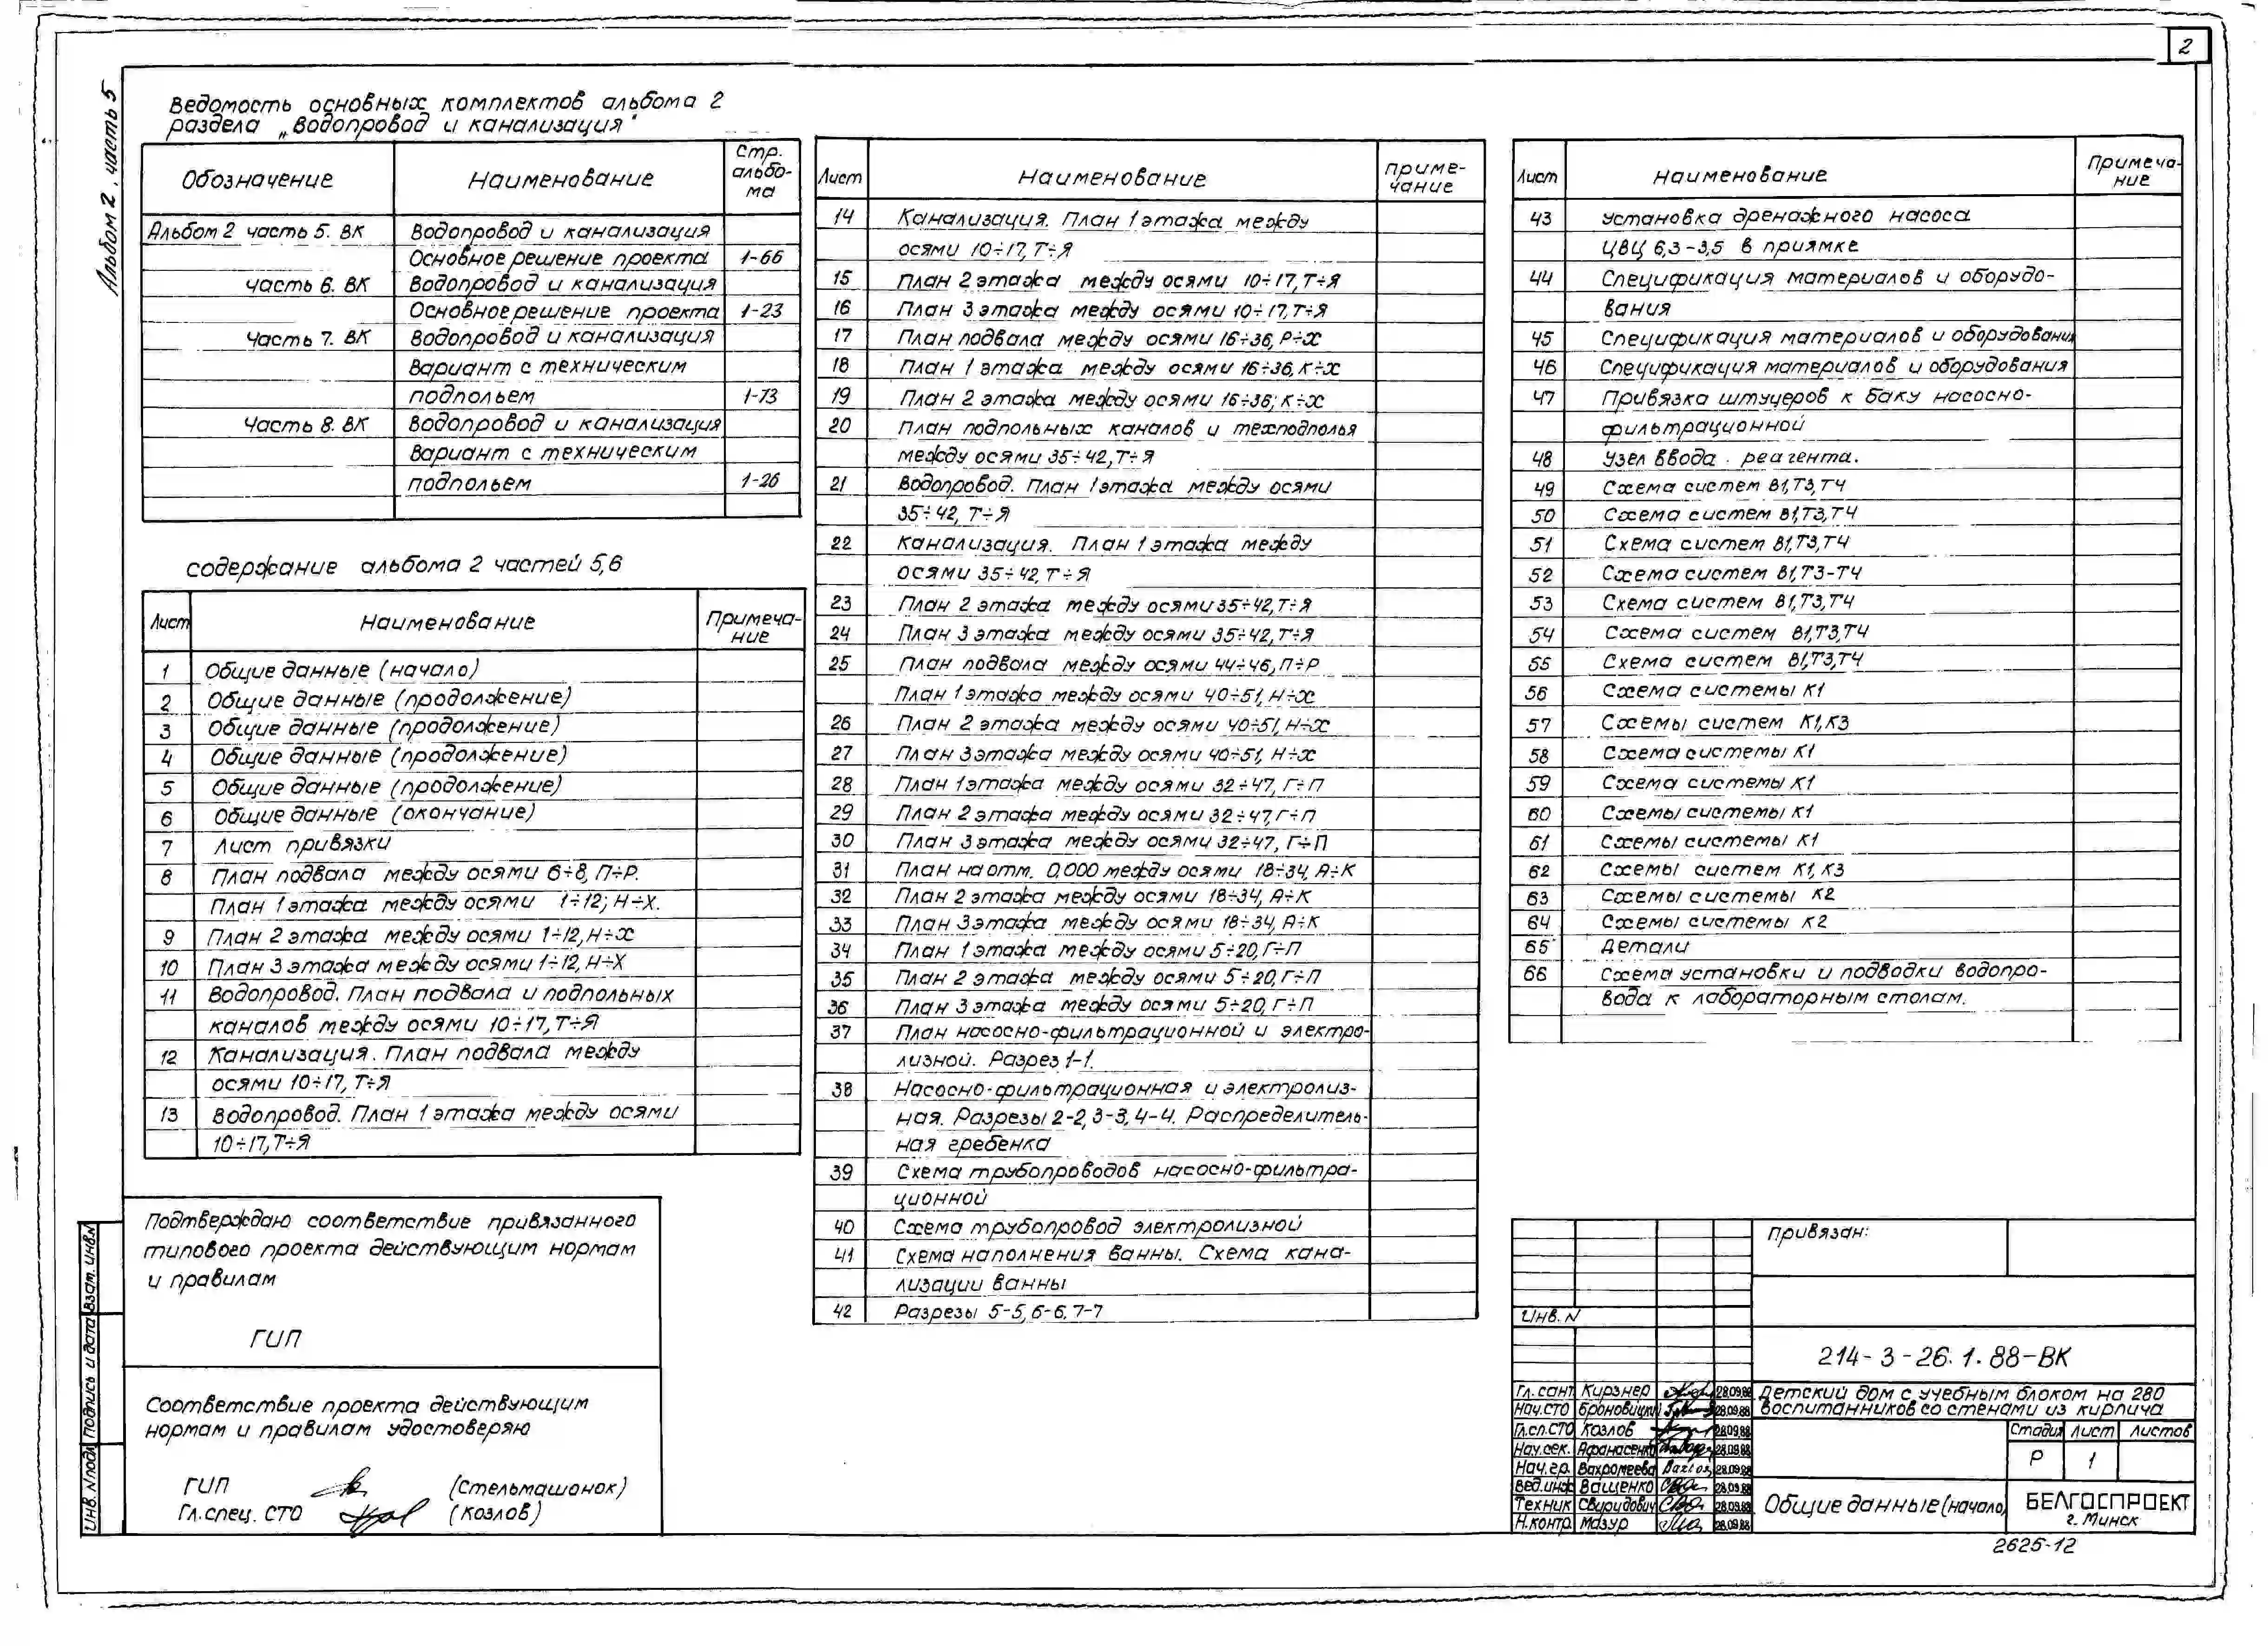 2
Альбом 2, часть 5
Ведомость основных комплектов альбома 2
раздела „Водопровод и канализация"
Обозначение Наименование Стр. альбо-ма
Альбом 2 часть 5. ВК Водопровод и канализация
Основное решение проекта 1-66
часть 6. ВК Водопровод и канализация
Основное решение проекта 1-23
Часть 7. ВК Водопровод и канализация
Вариант с техническим
подпольем 1-73
Часть 8. ВК Водопровод и канализация
Вариант с техническим
подпольем 1-26
Содержание альбома 2 частей 5,6
Лист Наименование Примеча-ние
1 Общие данные (начало)
2 Общие данные (продолжение)
3 Общие данные (продолжение)
4 Общие данные (продолжение)
5 Общие данные (продолжение)
6 Общие данные (окончание)
7 Лист привязки
8 План подвала между осями 6÷8, П÷Р.
План 1 этажа между осями 1÷12; Н÷Х.
9 План 2 этажа между осями 1÷12, Н÷Х
10 План 3 этажа между осями 1÷12, Н÷Х
11 Водопровод. План подвала и подпольных
каналов между осями 10÷17, Т÷Я
12 Канализация. План подвала между
осями 10÷17, Т÷Я
13 Водопровод. План 1 этажа между осями
10÷17, Т÷Я
Подтверждаю соответствие привязанного
типового проекта действующим нормам
и правилам
ГИП
Соответствие проекта действующим
нормам и правилам удостоверяю
ГИП (Стельмашонок)
Гл. спец. СТО (Козлов)
Взам. инв.N
Подпись и дата
Инв. N подл
Лист Наименование приме-чание
14 Канализация. План 1 этажа между
осями 10÷17, Т÷Я
15 План 2 этажа между осями 10÷17, Т÷Я
16 План 3 этажа между осями 10÷17, Т÷Я
17 План подвала между осями 16÷36, Р÷Х
18 План 1 этажа между осями 16÷36, К÷Х
19 План 2 этажа между осями 16÷36; К÷Х
20 План подпольных каналов и техподполья
между осями 35÷42, Т÷Я
21 Водопровод. План 1 этажа между осями
35÷42, Т÷Я
22 Канализация. План 1 этажа между
осями 35÷42, Т÷Я
23 План 2 этажа между осями 35÷42, Т÷Я
24 План 3 этажа между осями 35÷42, Т÷Я
25 План подвала между осями 44÷46, П÷Р
План 1 этажа между осями 40÷51, Н÷Х
26 План 2 этажа между осями 40÷51, Н÷Х
27 План 3 этажа между осями 40÷51, Н÷Х
28 План 1 этажа между осями 32÷47, Г÷П
29 План 2 этажа между осями 32÷47, Г÷П
30 План 3 этажа между осями 32÷47, Г÷П
31 План на отм. 0,000 между осями 18÷34, А÷К
32 План 2 этажа между осями 18÷34, А÷К
33 План 3 этажа между осями 18÷34, А÷К
34 План 1 этажа между осями 5÷20, Г÷П
35 План 2 этажа между осями 5÷20, Г÷П
36 План 3 этажа между осями 5÷20, Г÷П
37 План насосно-фильтрационной и электро-
лизной. Разрез 1-1.
38 Насосно-фильтрационная и электролиз-
ная. Разрезы 2-2, 3-3, 4-4. Распределитель-
ная гребенка
39 Схема трубопроводов насосно-фильтра-
ционной
40 Схема трубопровод электролизной
41 Схема наполнения ванны. Схема кана-
лизации ванны
42 Разрезы 5-5, 6-6, 7-7
Лист Наименование Примеча-ние
43 Установка дренажного насоса
ЦВЦ 6,3-3,5 в приямке
44 Спецификация материалов и оборудо-
вания
45 Спецификация материалов и оборудования
46 Спецификация материалов и оборудования
47 Привязка штуцеров к баку насосно-
фильтрационной
48 Узел ввода реагента.
49 Схема систем В1, Т3, Т4
50 Схема систем В1, Т3, Т4
51 Схема систем В1, Т3, Т4
52 Схема систем В1, Т3-Т4
53 Схема систем В1, Т3, Т4
54 Схема систем В1, Т3, Т4
55 Схема систем В1, Т3, Т4
56 Схема системы К1
57 Схемы систем К1, К3
58 Схема системы К1
59 Схема системы К1
60 Схемы системы К1
61 Схемы системы К1
62 Схемы систем К1, К3
63 Схемы системы К2
64 Схемы системы К2
65 Детали
66 Схема установки и подводки водопро-
вода к лабораторным столам.
Привязан:
Инв. N
214-3-26.1.88-ВК
Гл. сант Кирзнер 28.09.88
Нач. СТО Броновицкий 28.09.88
Гл.сп.СТО Козлов 28.09.88
Нач. сек. Афанасенко 28.09.88
Нач. гр. Вахромеева 28.09.88
Вед. инж Ващенко 28.09.88
Техник Свиридович 28.09.88
Н.контр. Мазур 28.09.88
Детский дом с учебным блоком на 280
воспитанников со стенами из кирпича
Стадия Лист Листов
Р 1
Общие данные (начало)
БЕЛГОСПРОЕКТ
г. Минск
2625-12